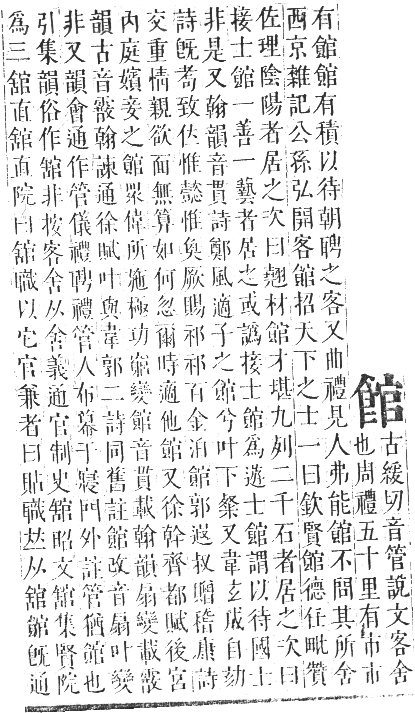 館
古緩切音管說文客舍
也周禮五十里有市市
有館館有積以待朝聘之客又曲禮見人弗能館不問其所舍
西京雜記公孫弘開客館招大下之士一曰欽賢館德任毗贊
佐理陰陽者居之次曰翹材館才堪九列二千石者居之次曰
接士館一善一藝者居之或譌接士館爲遊士館謂以待國士
非是又翰韻音貫詩鄭風適子之館兮叶下粲又韋玄成自劾
詩旣耇致仕惟懿惟奐厥賜祁祁百金洎館郭遐叔贈嵇康詩
交重情親欲面無算如何忽爾時適他館又徐幹齊都賦後宮
內庭嬪妾之館衆偉所施極功窮變館音貫載翰韻扇變載霰
韻古音霰翰諫通徐賦叶與韋郭二詩同舊註館改音扇叶變
非又韻會通作管儀禮聘禮管人布幕于寢門外註管猶館也
引集韻俗作舘非按客舍从舍義通官制史舘昭文舘集賢院
爲三舘直舘直院曰舘職以它官兼者曰貼職𠀤从舘館旣通